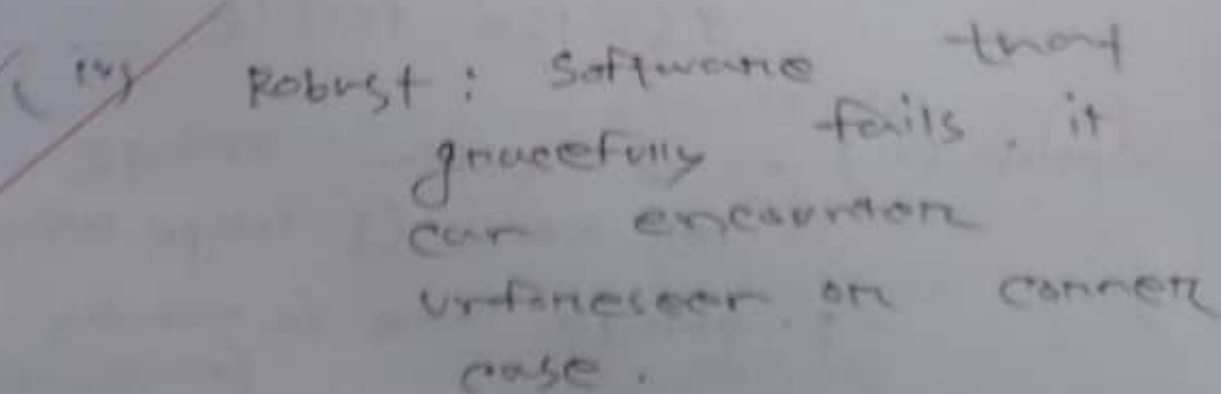 (iv) Robust : Software that
gracefully fails. it
can encounter
unforeseen or corner
case.